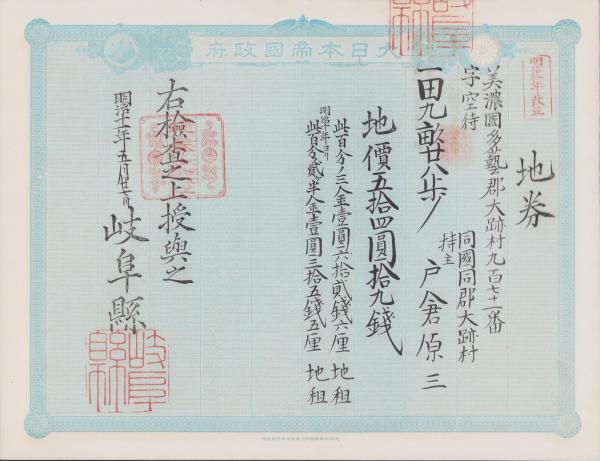 大日本帝國政府
明治八年改正
地券
美濃國多藝郡大跡村九百七十一番
字空待
同國同郡大跡村
持主 戸倉原三
一田九畝廿八歩
地價五拾四圓拾九錢
此百分ノ三金壹圓六拾貳錢六厘 地租
明治十年ヨリ
此百分ノ貳ケ半金壹圓三拾五錢五厘 地租
右檢査之上授與之
明治十一年五月廿一日
岐阜縣